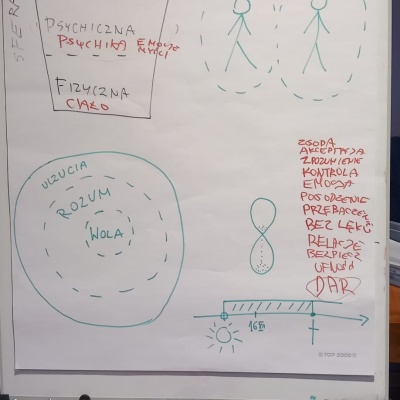 SFERA
PSYCHICZNA
PSYCHIKA EMOCJE
MYŚLI
FIZYCZNA
CIAŁO
UCZUCIA
ROZUM
WOLA
ZGODA
AKCEPTACJA
ZROZUMIENIE
KONTROLA
EMOCJA
POGODZENIE
PRZEBACZENIE
BEZ LĘKU
RELACJE
BEZPIECZ
UFNOŚĆ
DAR